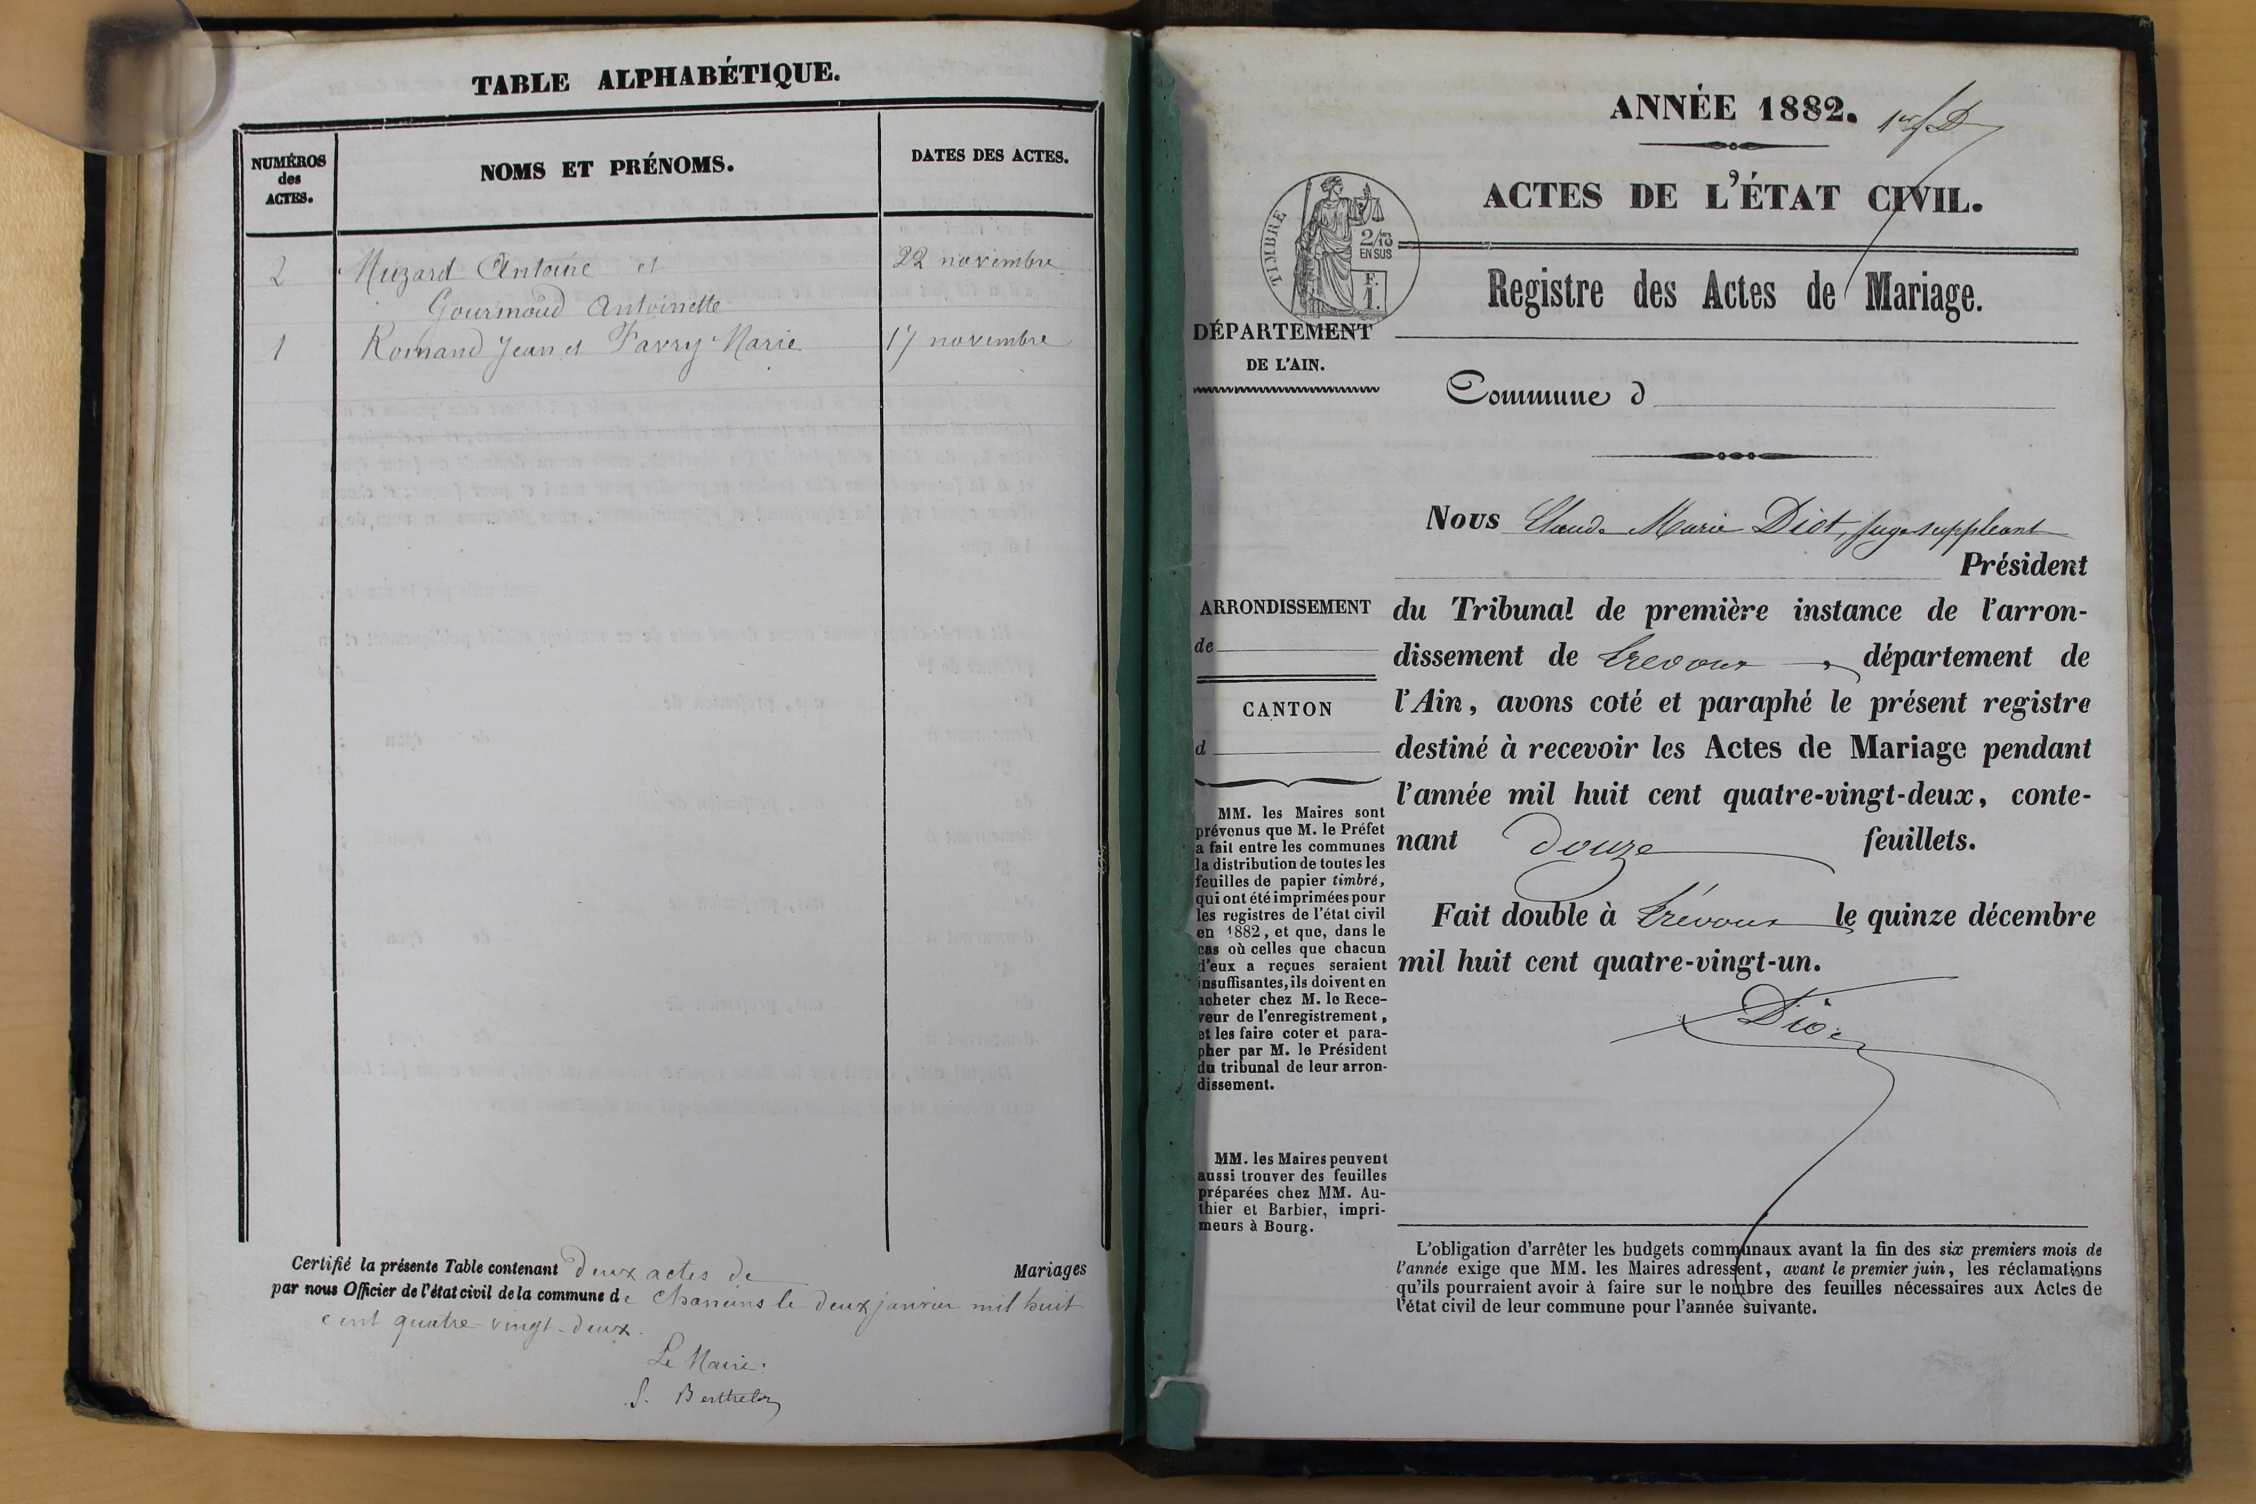 TABLE ALPHABÉTIQUE.
NUMÉROS
des
ACTES.
NOMS ET PRÉNOMS.
DATES DES ACTES.
2 Muzard Antoine et 22 novembre
Gourmoud Antoinette
1 Romand Jean et Favry Marie 17 novembre
Certifié la présente Table contenant deux actes de Mariages
par nous Officier de l'état civil de la commune de Chaneins le deux janvier mil huit
cent quatre-vingt-deux.
Le Maire:
Berthelon
ANNÉE 1882.
ACTES DE L'ÉTAT CIVIL.
TIMBRE
2/10
EN SUS
F.
1.
Registre des Actes de Mariage.
DÉPARTEMENT
DE L'AIN.
Commune d
Nous Claude Marie Diot, juge suppleant
Président
ARRONDISSEMENT
de
CANTON
d
du Tribunal de première instance de l'arron-
dissement de Trevoux, département de
l'Ain, avons coté et paraphé le présent registre
destiné à recevoir les Actes de Mariage pendant
l'année mil huit cent quatre-vingt-deux, conte-
nant douze feuillets.
Fait double à Trévoux le quinze décembre
mil huit cent quatre-vingt-un.
Diot
MM. les Maires sont
prévenus que M. le Préfet
a fait entre les communes
la distribution de toutes les
feuilles de papier timbré,
qui ont été imprimées pour
les registres de l'état civil
en 1882, et que, dans le
cas où celles que chacun
d'eux a reçues seraient
insuffisantes, ils doivent en
acheter chez M. le Rece-
veur de l'enregistrement,
et les faire coter et para-
pher par M. le Président
du tribunal de leur arron-
dissement.
MM. les Maires peuvent
aussi trouver des feuilles
préparées chez MM. Au-
thier et Barbier, impri-
meurs à Bourg.
L'obligation d'arrêter les budgets communaux avant la fin des six premiers mois de
l'année exige que MM. les Maires adressent, avant le premier juin, les réclamations
qu'ils pourraient avoir à faire sur le nombre des feuilles nécessaires aux Actes de
l'état civil de leur commune pour l'année suivante.